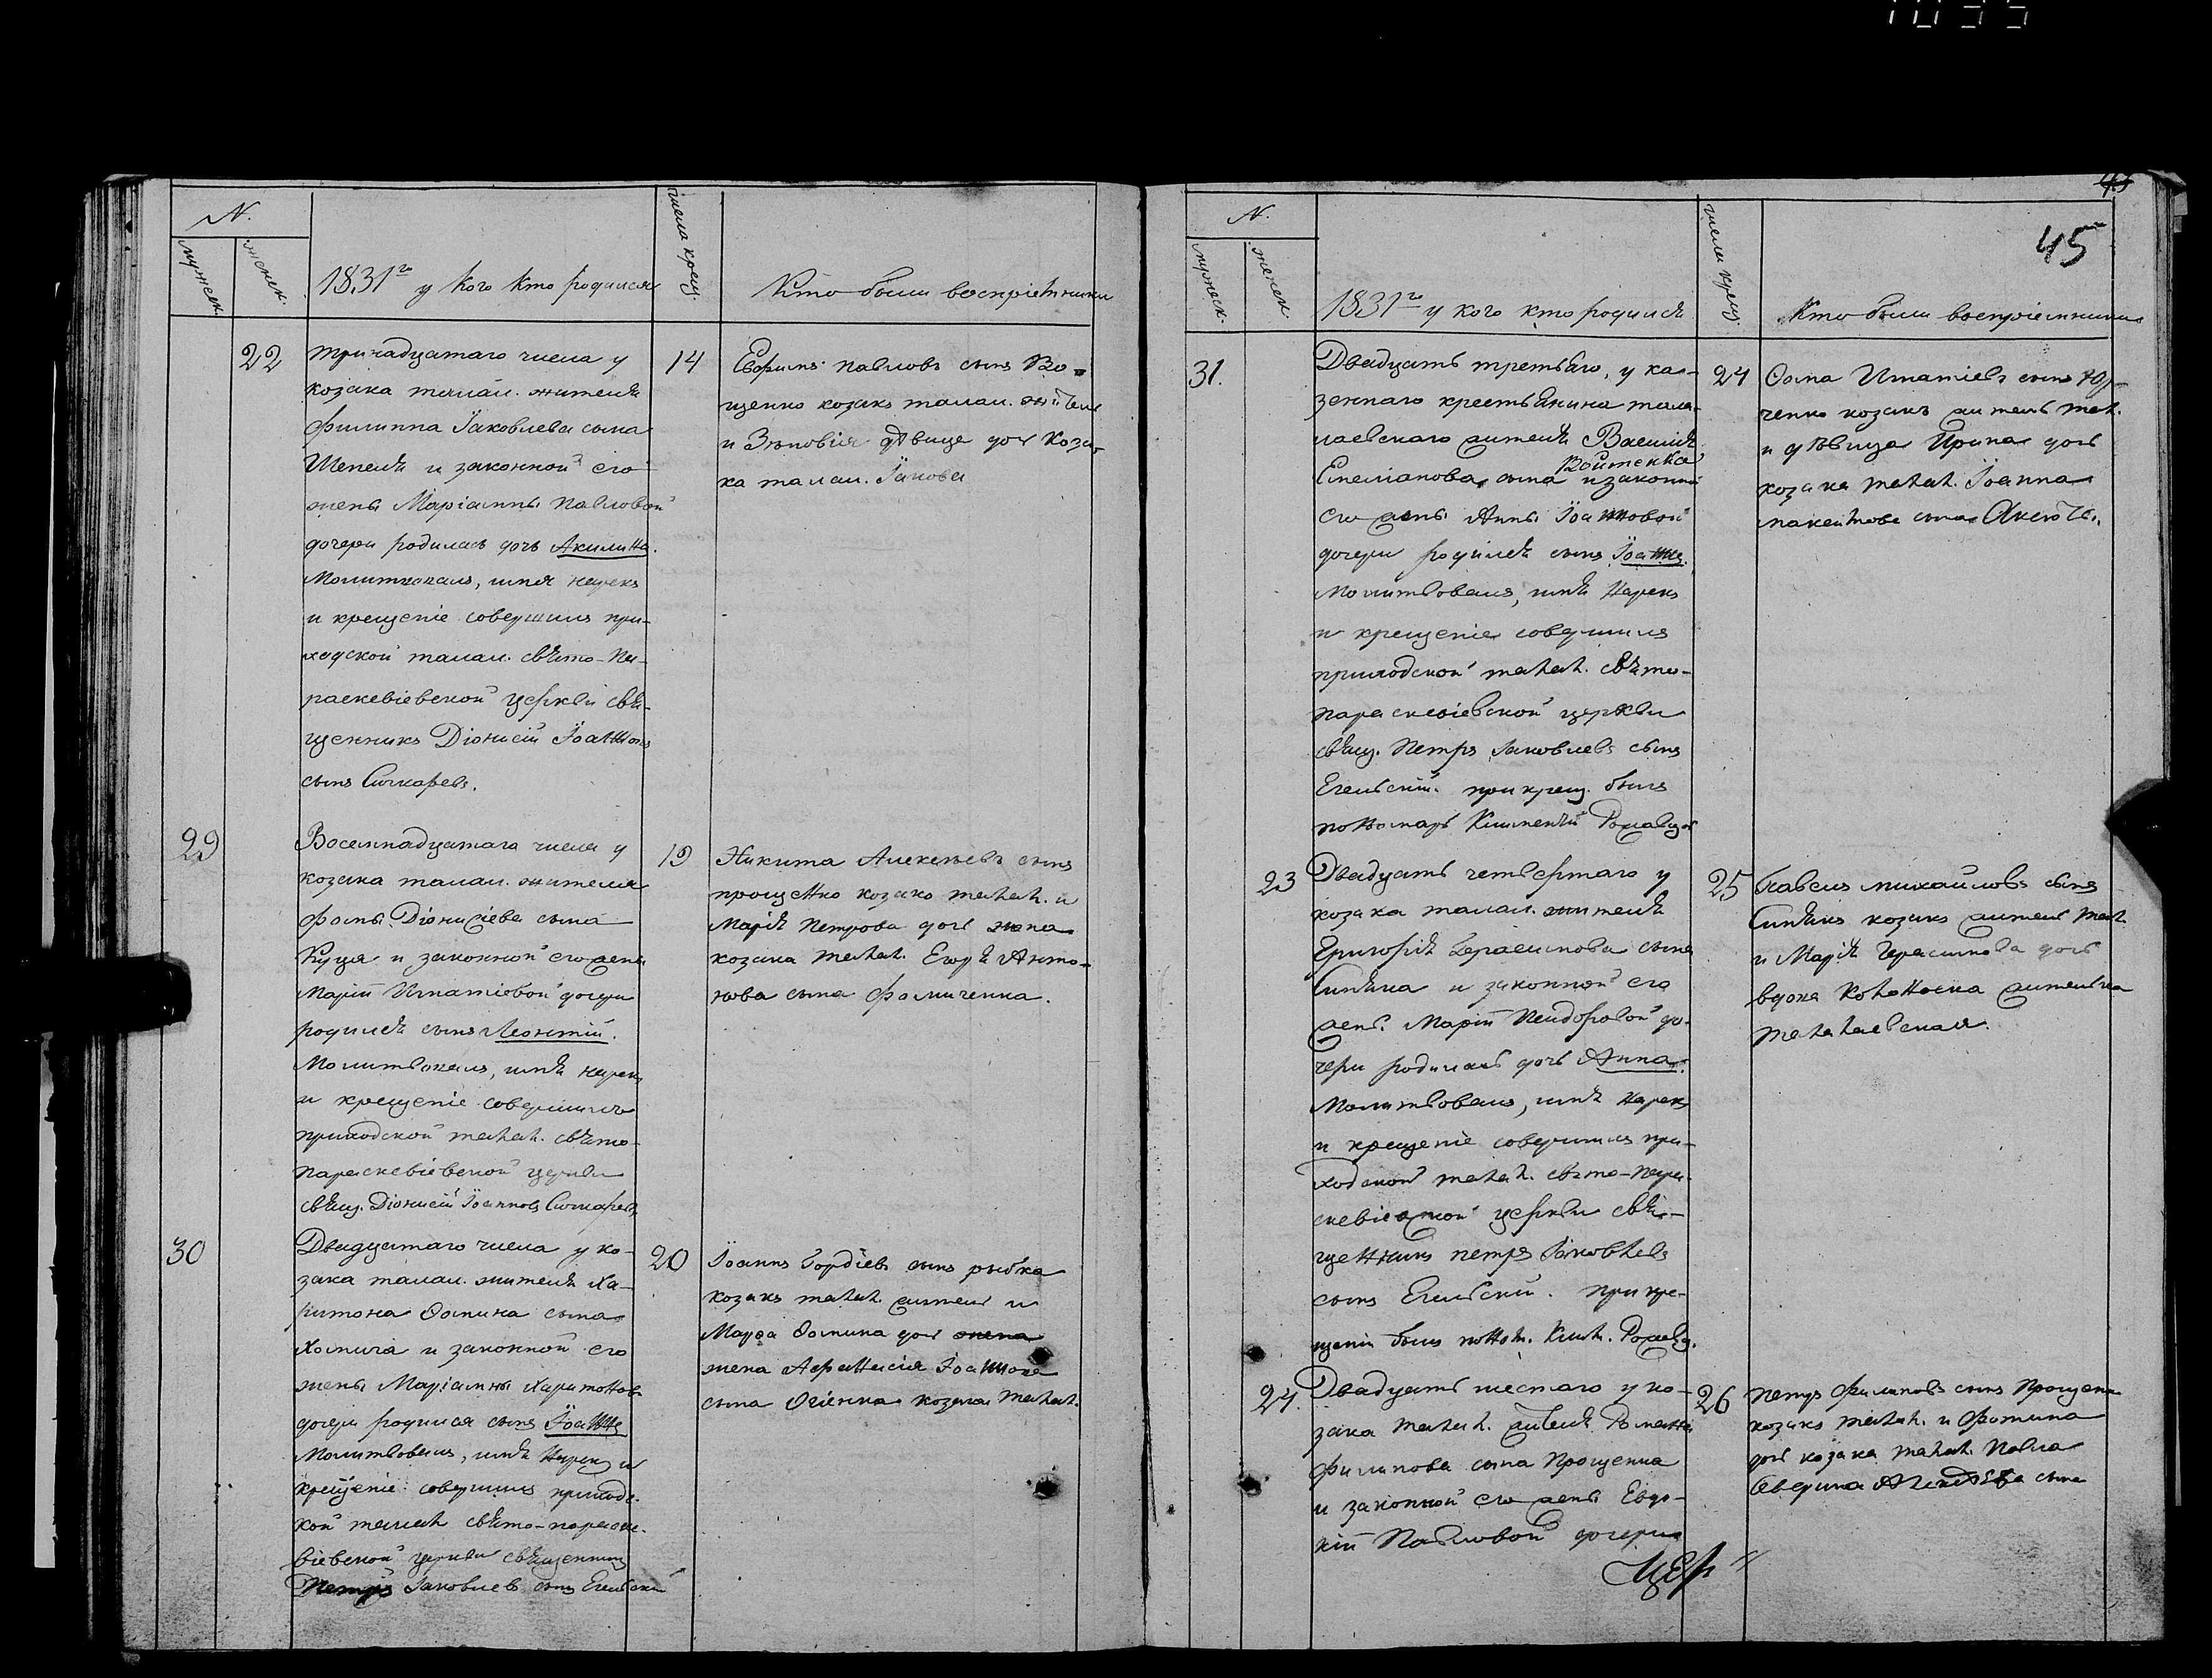 1055
N.
мужеск.
женск.
1831го у кого кто родился
числа крещ.
Кто были восприемники
22
тринадцатаго числа у
козака талал. жителя
Филиппа Іаковлева сына
Шепеля и законной его
жены Маріанны Павловой
дочери родилась дочь Акилина.
Молитвовалъ, имя нарекъ
и крещеніе совершилъ при-
ходской талал. свято-Па-
раскевіевской церкви свя-
щенникъ Діонисій Іоанновъ
сынъ Сичкаревъ.
14
Евфимъ павловъ сынъ Во-
щенко козакъ талал. житель
и Зѣновія дѣвица дочь Коза-
ка талал. Іакова
29
Восемнадцатаго числа у
козака талал. жителя
Фомы Діонисіева сына
Куця и законной его жены
Маріи Игнатіевой дочери
родился сынъ Леонтій.
Молитвовалъ, имя нарекъ
и крещеніе совершилъ
приходской талал. свято-
параскевіевской церкви
свящ. Діонисій Іоанновъ Сичкаревъ
19
Никита Алексѣевъ сынъ
прощенко козакъ талал. и
Марія Петрова дочь жена
козака талал. Егорія Анто-
нова сына Фомиченка.
30
Двадцатаго числа у ко-
зака талал. жителя Ха-
ритона Ѳомина сына
Хомича и законной его
жены Маріамны Харитонов.
дочери родился сынъ Іоаннъ
Молитвовалъ, имя нарекъ и
крещеніе совершилъ приходс-
кой талал. свято-параске-
віевской церкви священникъ
Петръ Іаковлевъ сынъ Егельскій
20
Іоаннъ Гордіевъ сынъ рыбка
козакъ талал. житель и
Марѳа Ѳомина дочь жена
жена Афанасія Іоаннова
сына Огіенка козака талал.
45
N.
мужеск.
женск.
1831го у кого кто родился
числа крещ.
Кто были восприемники
31.
Двадцать третьяго, у ка-
зеннаго крестьянина тала-
лаевскаго жителя Василія
Емеліанова сына Войтенка и законной
его жены Анны Іоанновой
дочери родился сынъ Іоаннъ.
Молитвовалъ, имя нарекъ
и крещеніе совершилъ
приходской талал. свято-
параскевіевской церкви
свящ. Петръ Іаковлевъ сынъ
Егельскій. при крещ. былъ
пономарь Климентій
24
Ѳома Игнатіевъ сынъ Юр-
ченко козакъ житель тал.
и дѣвица Ирина дочь
козака талал. Іоанна
сына
23
Двадцать четвертаго у
козака талал. жителя
Григорія Герасимова сына
Синяка и законной его
жены Маріи Исидоровой до-
чери родилась дочь Анна.
Молитвовалъ, имя нарекъ
и крещеніе совершилъ при-
ходской талал. свято-пара-
скевіевской церкви свя-
щенникъ петръ Іаковлевъ
сынъ Егельскій. При кре-
щеніи былъ поном. Клим.
25
Павелъ михайловъ сынъ
Синякъ козакъ житель тал.
и Марія Герасимова дочь
вдова жителка
талалаевская.
24.
Двадцать шестаго у ко-
зака талал. жителя Романа
Филипова сына Прощенка
и законной его жены Евдо-
кіи Павловой дочери
26
Петръ Филиповъ сынъ Прощенко
козакъ талал. и Фотина
дочь козака талал. Павла
сына
Цер